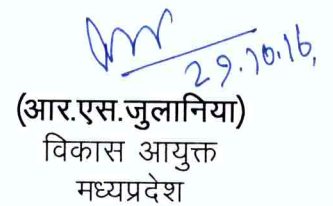 29.10.16,
(आर.एस.जुलानिया)
विकास आयुक्त
मध्यप्रदेश